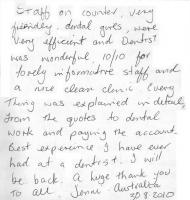 Staff on counter, very
friendly, dental girls, were
very efficient and Dentist
was wonderful 10/10 for
lovely informative staff and
a nice clean clinic. Every
thing was explained in detail,
from the quotes to dental
work and paying the account.
Best experience I have ever
had at a dentist. I will
be back. A huge thank you
to all Jenni - Australia
8.2010